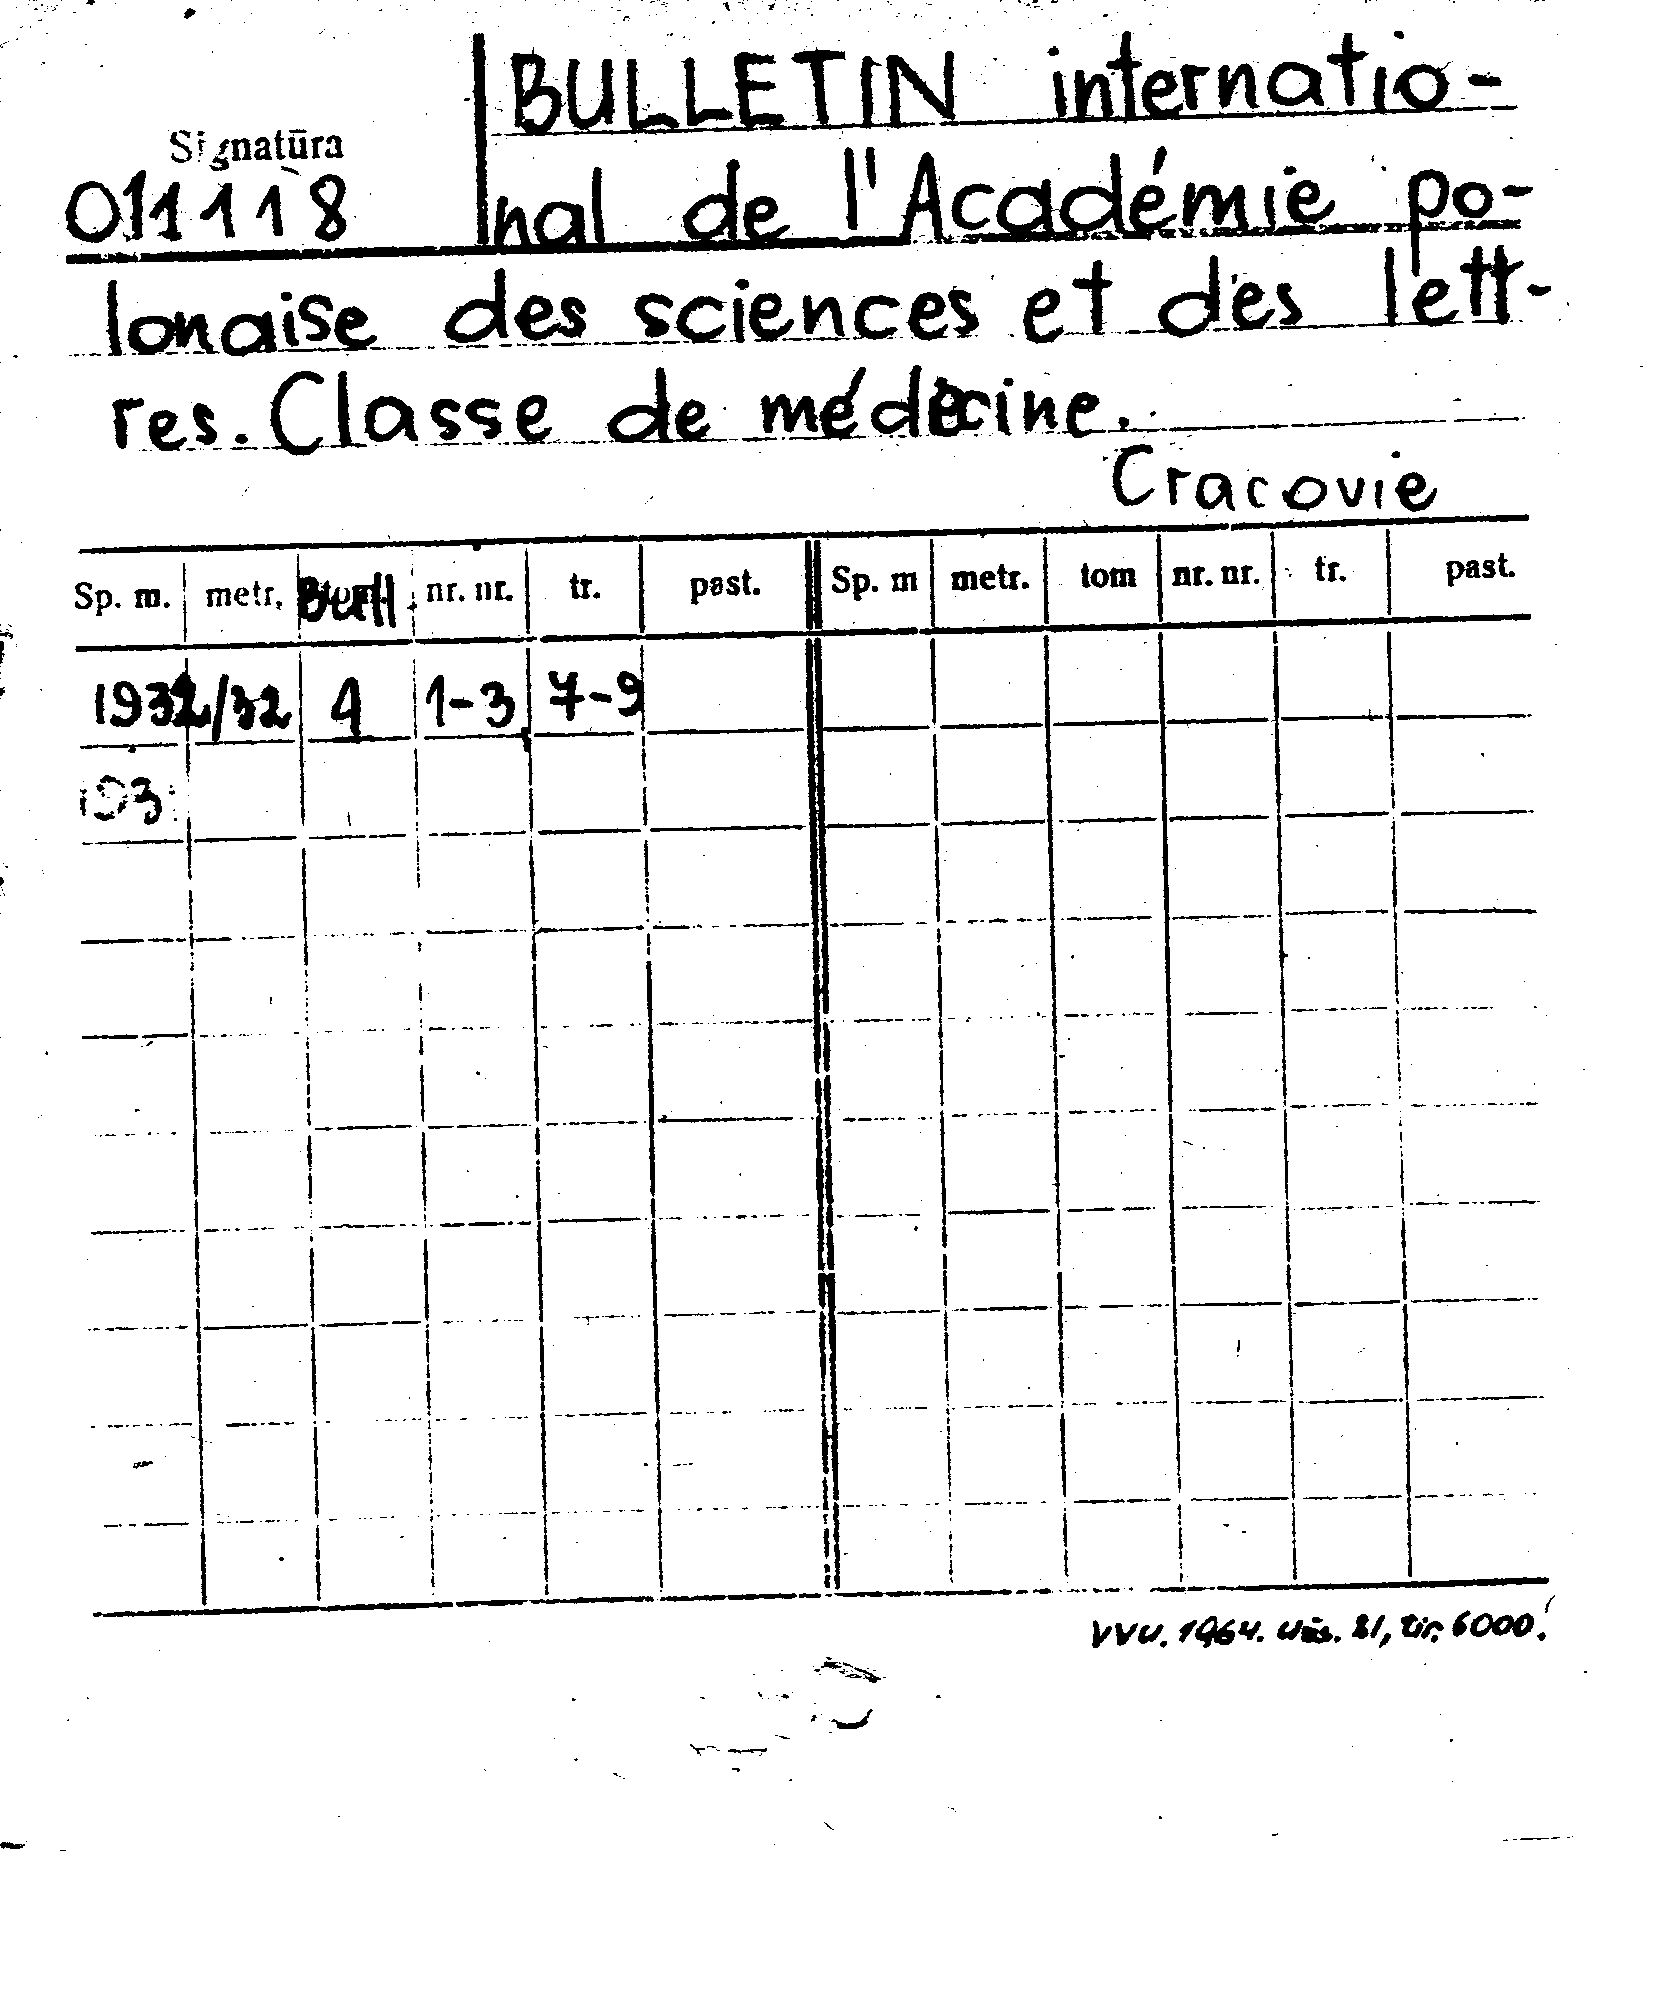 BULLETIN internatio-
Signatūra
011118
nal de l'Académie po-
lonaise des sciences et des lett-
res. Classe de médecine.
Cracovie
Sp. m. metr. Bull. nr. nr. tr. past. Sp. m metr. tom nr. nr. tr. past.
1932/32 1 1-3 7-9
193
VVU. 1964. Užs. 81, tir. 6000.